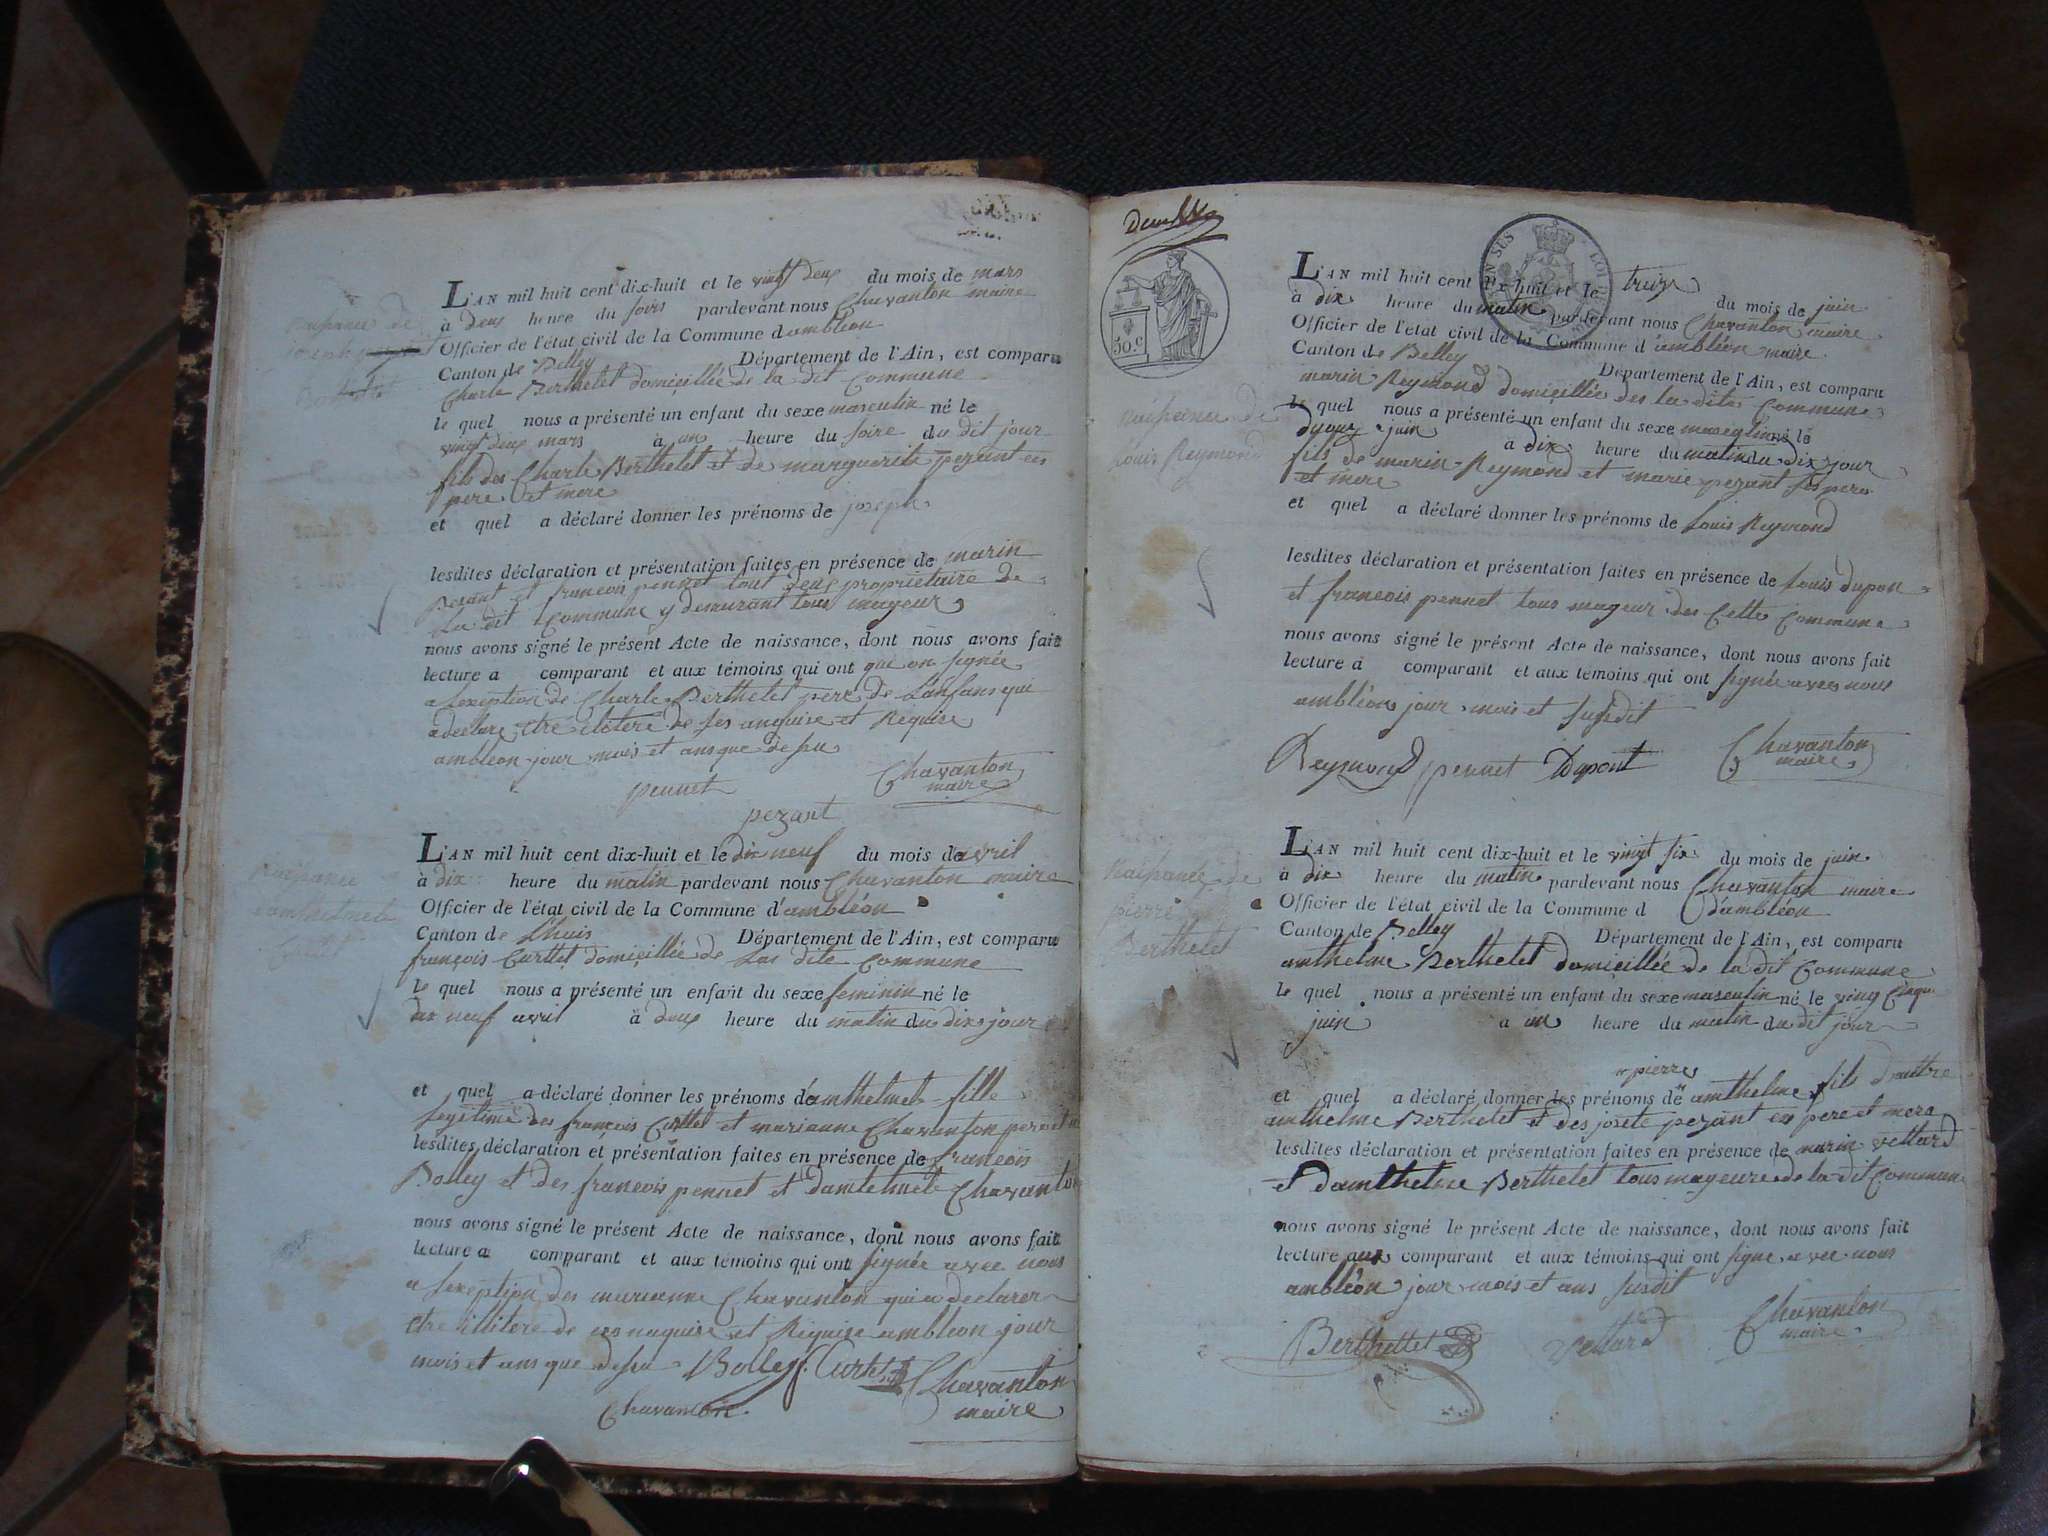 L'AN mil huit cent dix-huit et le vingt deux du mois de mars
à deux heure du soire pardevant nous Chavanton maire
Officier de l'état civil de la Commune d'ambléon
Canton de Belley Département de l'Ain, est comparu
Charle Berthelet domicillée de la dit Commune
le quel nous a présenté un enfant du sexe masculin né le
vingt deux mars à un heure du soire du dit jour
fils des Charle Berthelet et de marguerite pezant
pere et mere
et quel a déclaré donner les prénoms de joseph
lesdites déclaration et présentation faites en présence de marin
pezant et francois pennet tout deux propriétaire de
la dit Commune y demurant tous mayeur
nous avons signé le présent Acte de naissance, dont nous avons fait
lecture a comparant et aux témoins qui ont que on signée
a lexeption de Charle Berthelet pere de Lanfans qui
a declare etre de Requise
ambleon jour mois et ans que desu
pennet Chavanton
maire
pezant
Naissance
L'AN mil huit cent dix-huit et le dix neuf du mois de avril
à dix heure du matin pardevant nous Chavanton maire
Officier de l'état civil de la Commune d'ambléon
Canton de Lhuis Département de l'Ain, est comparu
françois Curttet domicillée de Las dite Commune
le quel nous a présenté un enfant du sexe feminin né le
dix neuf avril à deux heure du matin du dix jour
et quel a déclaré donner les prénoms d'amthelmete fille
legitime des francois Curttet et marianne Chavanton pere et
lesdites déclaration et présentation faites en présence de francois
Bolley et des francois pennet et Chavanton
nous avons signé le présent Acte de naissance, dont nous avons fait
lecture a comparant et aux témoins qui ont signée avec nous
a lexeption des marianne Chavanton qui a declarer
etre illitere de ces naquise et Requise ambleon jour
mois et ans que desu Bolley f. Curttet Chavanton
Chavanton maire
50.c
Naissance de
Louis Reymond
L'AN mil huit cent dix-huit et le treize du mois de juin
à dix heure du matin pardevant nous Chavanton maire
Officier de l'etat civil de la Commune d'ambléon maire
Canton de Belley Département de l'Ain, est comparu
marin Reymond domicillée des la dite Commune
le quel nous a présenté un enfant du sexe né le
juin à dix heure du matin du dix jour
fils de marin Reymond et marie pezant ses pere
et mere
et quel a déclaré donner les prénoms de Louis Reymond
lesdites déclaration et présentation faites en présence de Louis dupon
et francois pennet tous mayeur des Cette Commune
nous avons signé le présent Acte de naissance, dont nous avons fait
lecture a comparant et aux témoins qui ont signée avec nous
ambléon jour mois et susdit
Reymond pennet Dupont Chavanton
maire
Naissance de
pierre
Berthelet
L'AN mil huit cent dix-huit et le vingt six du mois de juin
à dix heure du matin pardevant nous Chavanton maire
Officier de l'état civil de la Commune d d'ambléon
Canton de Belley Département de l'Ain, est comparu
amthelme Berthelet domicillée de la dit Commune
le quel nous a présenté un enfant du sexe masculin né le
juin à un heure du matin du dit jour
pierre
et quel a déclaré donner les prénoms de amthelme fils
amthelme Berthelet et des pezant pere et mere
lesdites déclaration et présentation faites en présence de marin vettard
et damthelme Berthelet tous mayeure de la dit Commune
nous avons signé le présent Acte de naissance, dont nous avons fait
lecture aux comparant et aux témoins qui ont signe avec nous
ambléon jour mois et ans susdit
Berthettet vettard Chavanton
maire